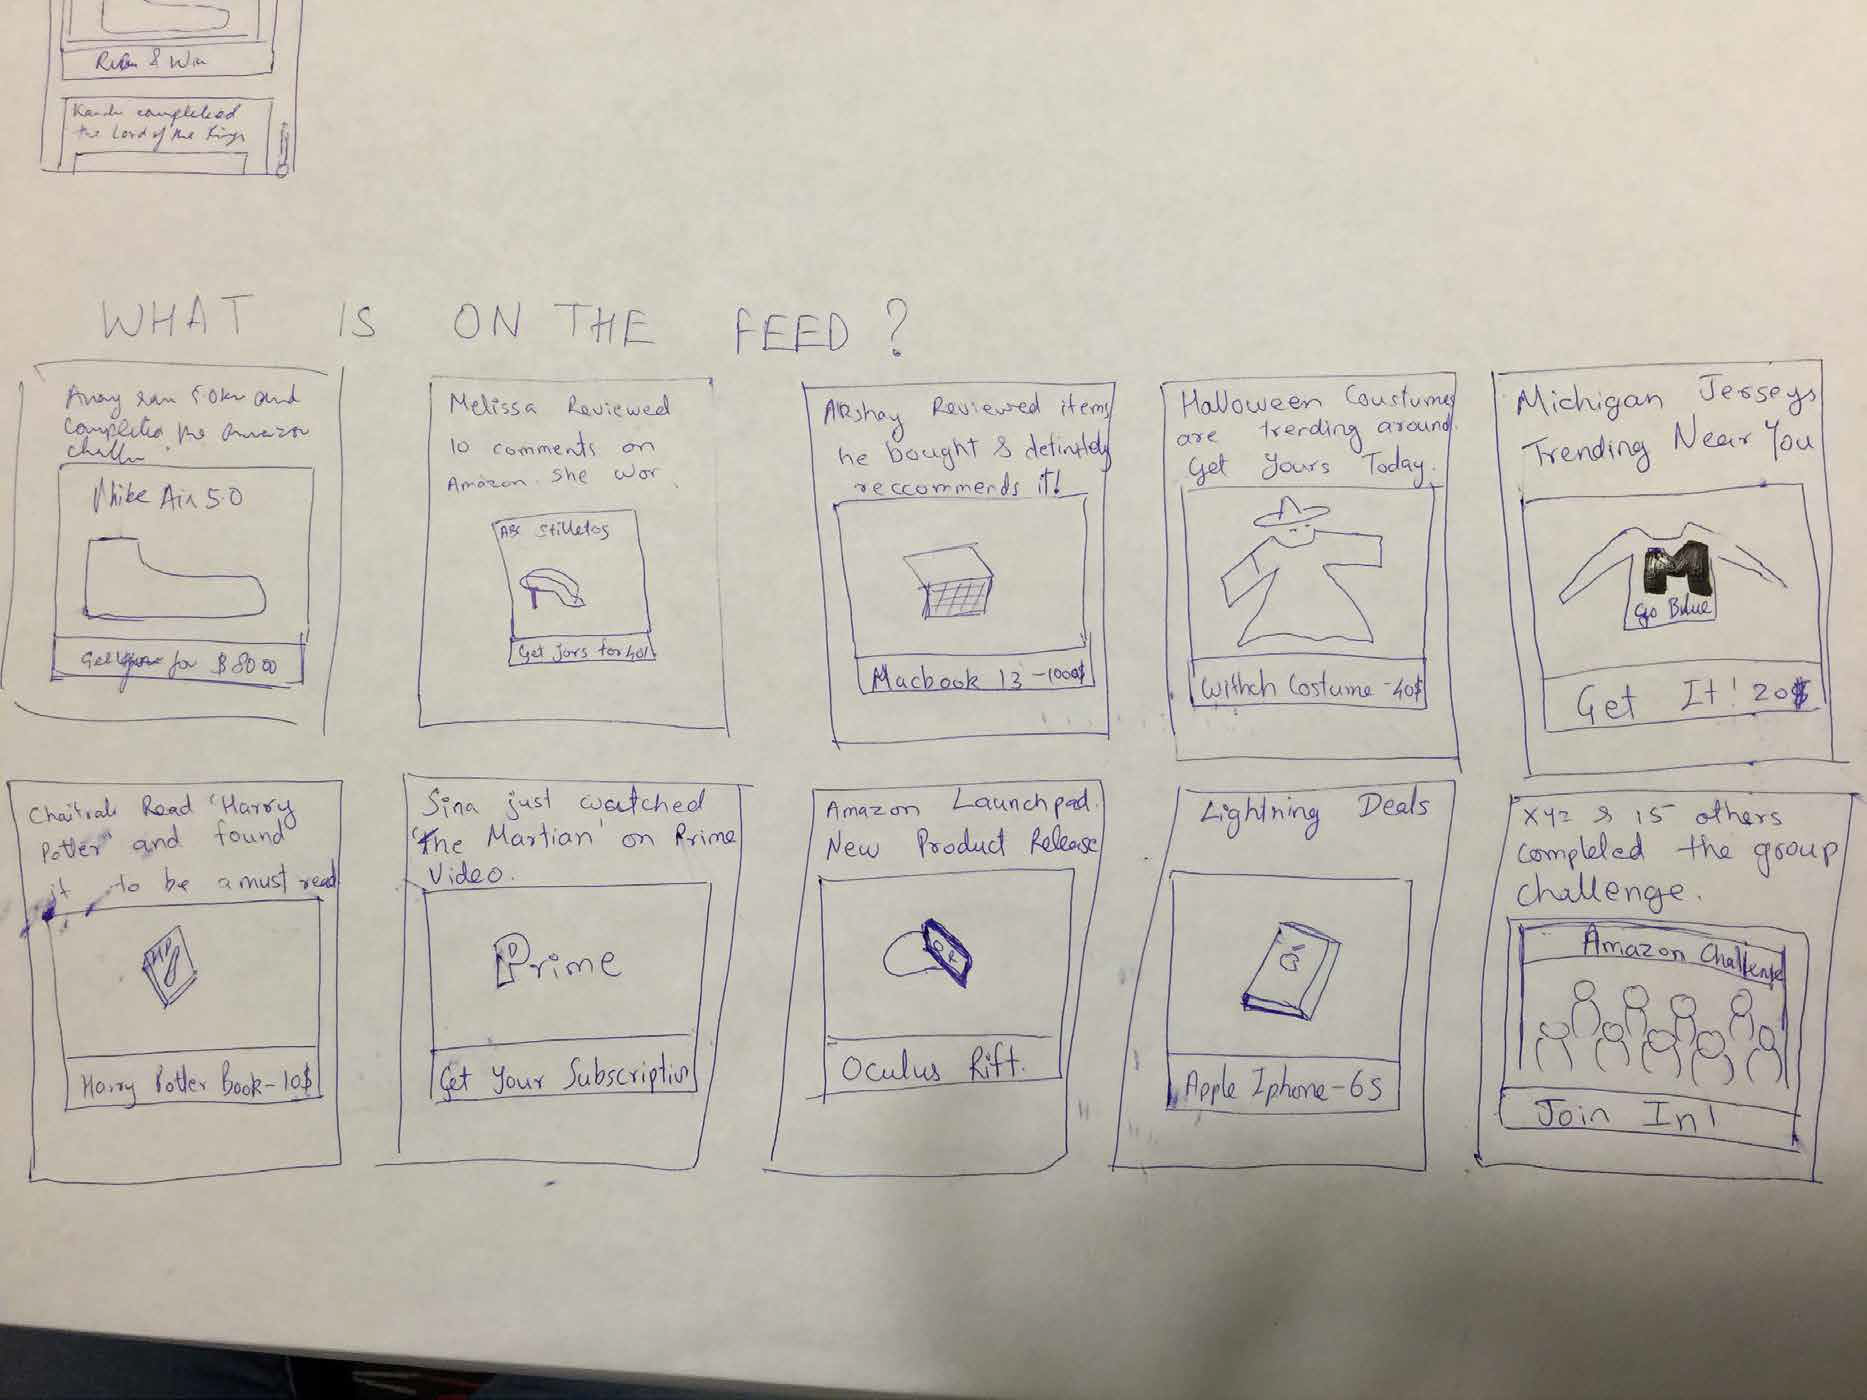 & Win
completed
the Lord of the Rings
WHAT IS ON THE FEED?
ran 50km and
Completed the Amazon
Nike Air 5.0
for $ 8000
Melissa Reviewed
10 comments on
Amazon. She won
ABC Stilletos
Get yors for 40%
AKshay Reviewed items
he bought & definitely
reccommends it!
Macbook 13 - 1000$
Halloween Coustumes
are trending around.
Get Yours Today.
Withch Costume - 40$
Michigan Jerseys
Trending Near You
M
Go Blue
Get It! 20$
Chaitrali Read 'Harry
Potter' and found
it to be a must read
HP
Harry Potter Book - 10$
Sina just watched
'The Martian' on Prime
Video.
Prime
Get Your Subscription
Amazon Launchpad.
New Product Release
OR
Oculus Rift.
Lightning Deals
Apple Iphone - 6S
XYZ & 15 others
completed the group
challenge.
Amazon Challenge
Join In!